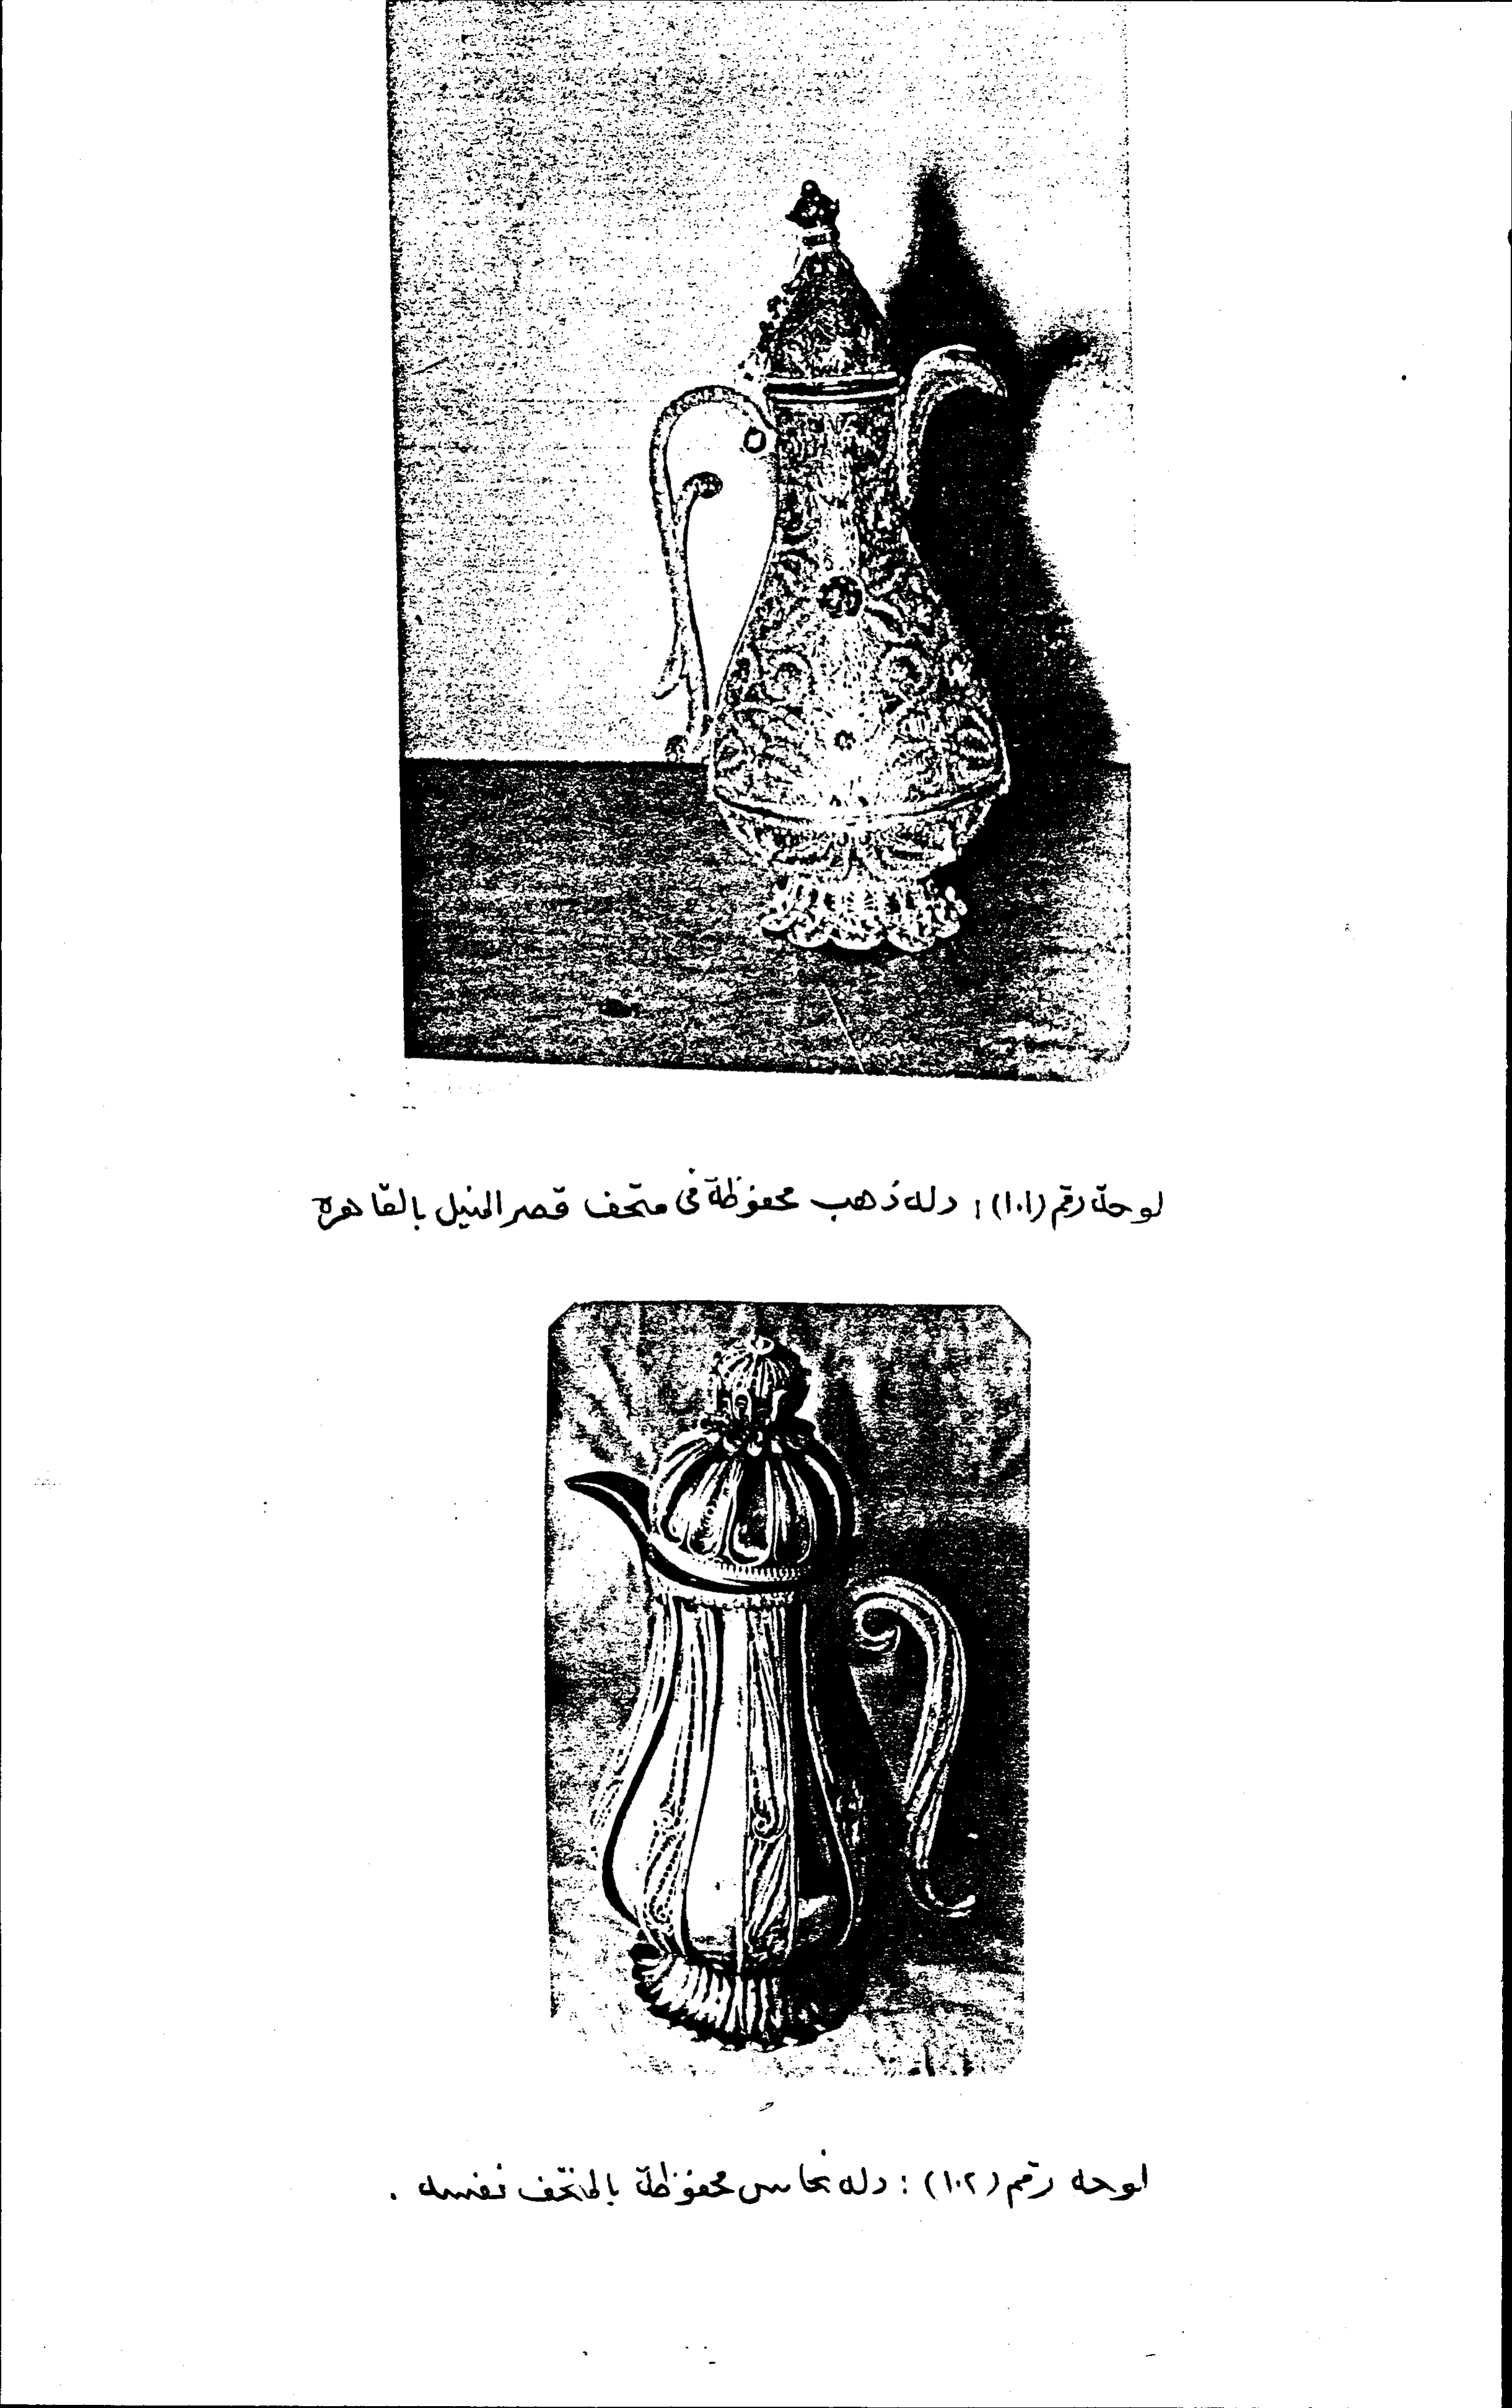 لوحة رقم (١٠١) : دله ذهب محفوظة فى متحف قصر المنيل بالقاهره
لوحه رقم (١٠٢) : دله نحاس محفوظة بالمتحف نفسه .